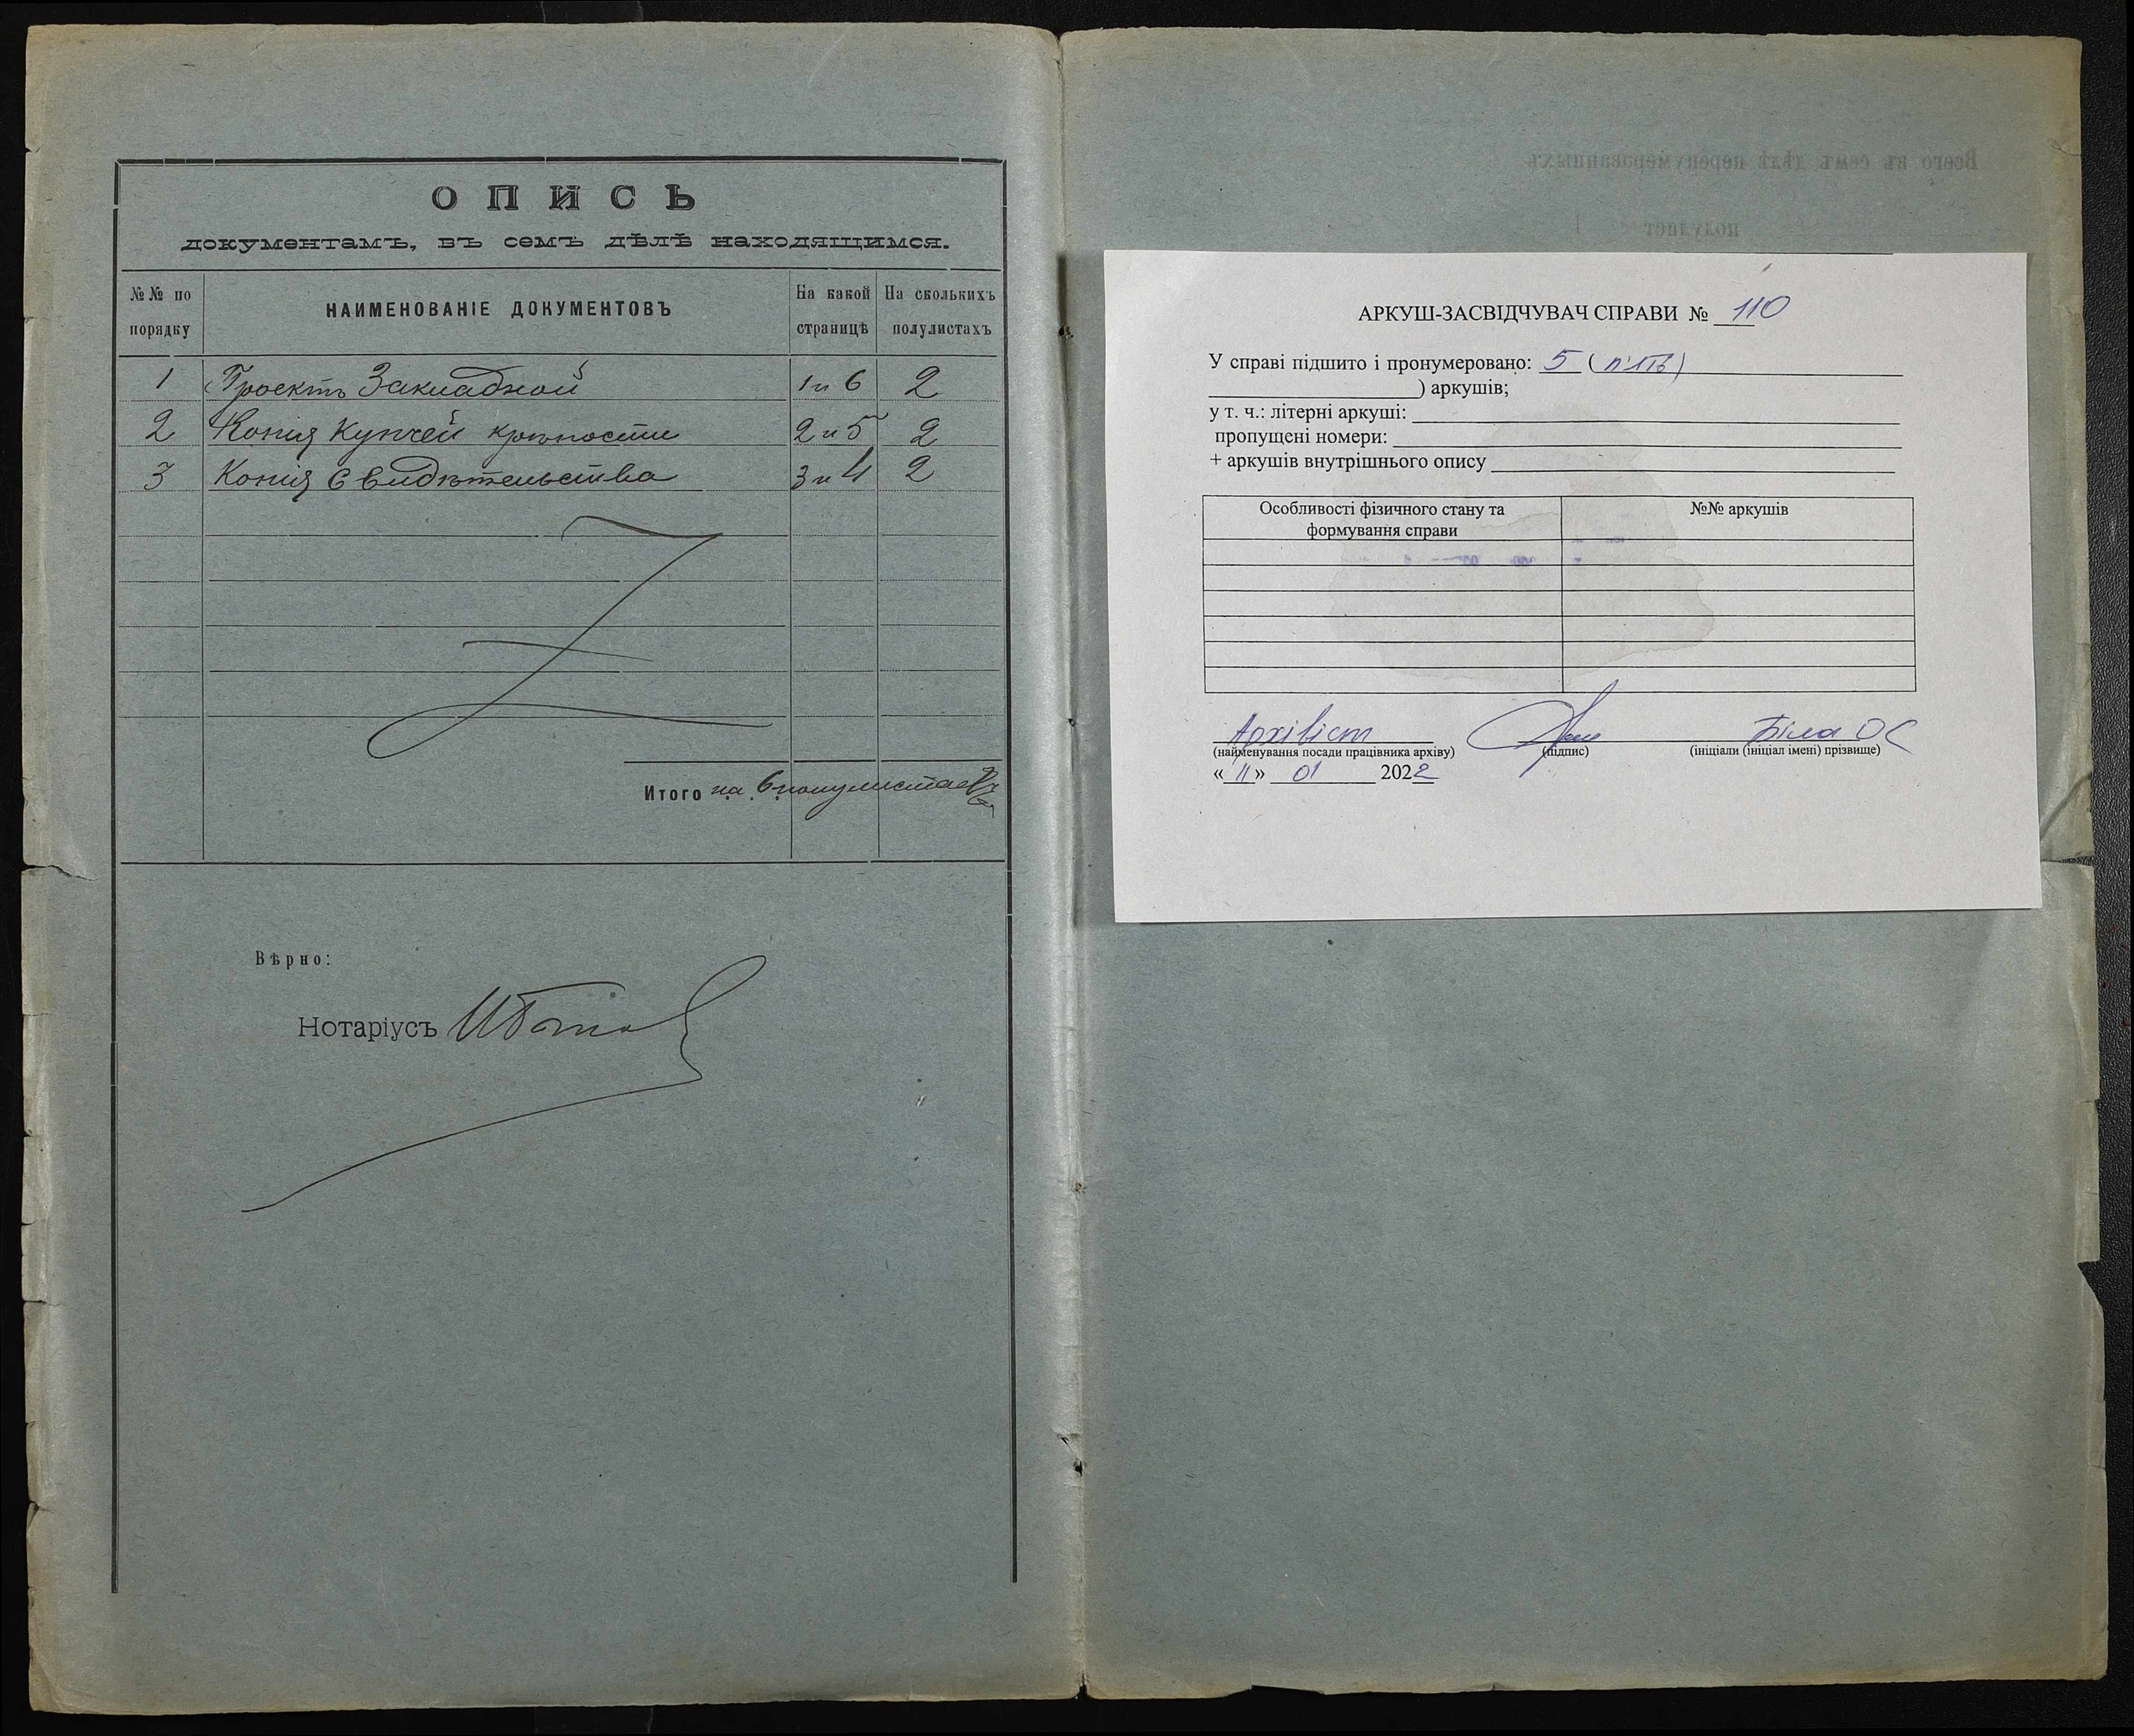 ОПИСЬ
документамъ, въ семъ дѣлѣ находящимся.
№№ по порядку
НАИМЕНОВАНІЕ ДОКУМЕНТОВЪ
На какой страницѣ
На сколькихъ полулистахъ
1 Проектъ Закладной 1 и 6 2
2 Копія Купчей крѣпости 2 и 5 2
3 Копія Свидѣтельства 3 и 4 2
Итого на 6 полулистахъ
Вѣрно:
Нотаріусъ
Всего въ семъ дѣлѣ перенумерованныхъ
полулист
АРКУШ-ЗАСВІДЧУВАЧ СПРАВИ № 110
У справі підшито і пронумеровано: 5 (п'ять)
) аркушів;
у т. ч.: літерні аркуші:
пропущені номери:
+ аркушів внутрішнього опису
Особливості фізичного стану та
формування справи
№№ аркушів
Архівіст Біла ОС
(найменування посади працівника архіву) (підпис) (ініціали (ініціал імені) прізвище)
« 11 » 01 2022